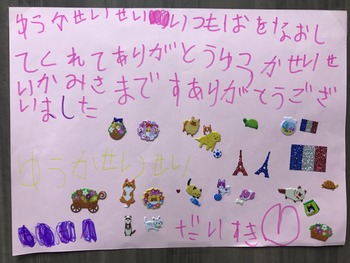 ゆうかせいせいいつもばをなおし
てくれてありがとうゆうかせいせ
いかみさまですありがとうござ
いました
ゆうかせいせい
だいすき